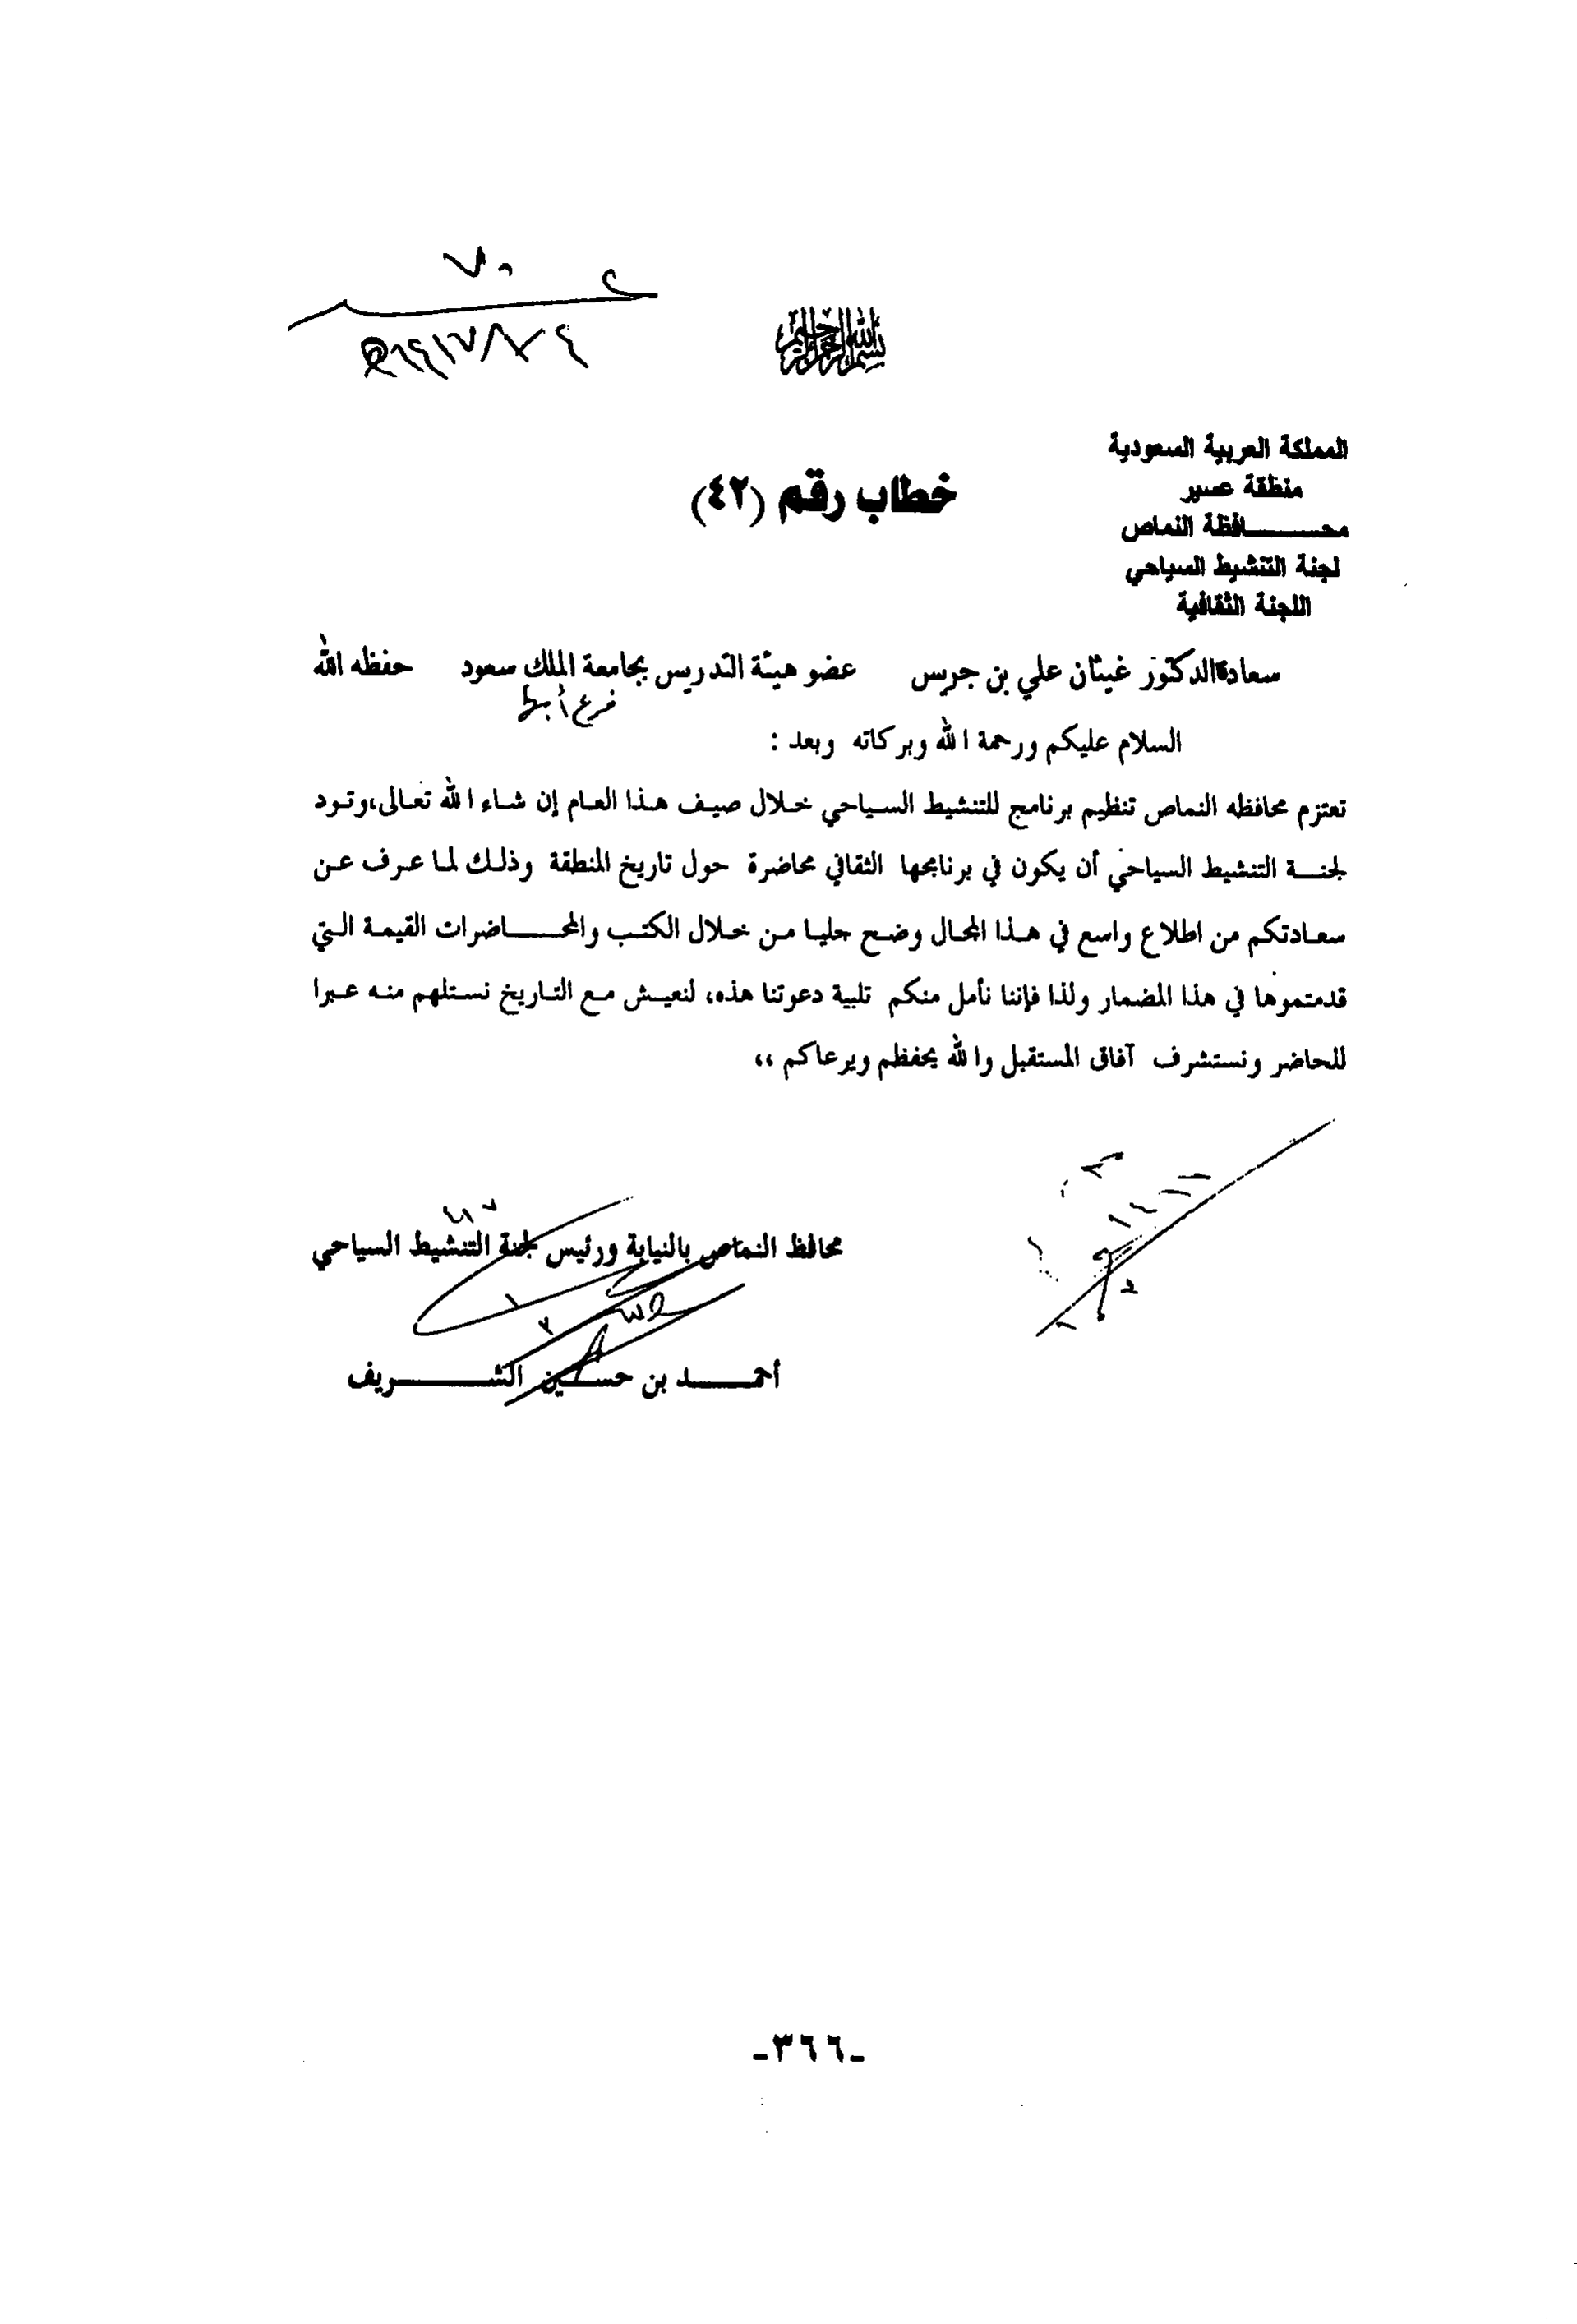 بسم الله الرحمن الرحيم
المملكة العربية السعودية
منطقة عسير
محـــــــافظة النماص
لجنة التنشيط السياحي
اللجنة الثقافية
خطاب رقم (٤٢)
سعادةالدكتور غيثان علي بن جريس عضو هيئة التدريس بجامعة الملك سعود حفظه الله
فرع أبها
السلام عليكم ورحمة الله وبركاته وبعد :
تعتزم محافظه النماص تنظيم برنامج للتنشيط السياحي خلال صيف هذا العام إن شاء الله تعالى،وتود
لجنـــة التنشيط السياحي أن يكون في برنامجها الثقافي محاضرة حول تاريخ المنطقة وذلك لما عرف عن
سعادتكم من اطلاع واسع في هذا المجال وضح جليا من خلال الكتب والمحـــــــاضرات القيمة التي
قدمتموها في هذا المضمار ولذا فإننا نأمل منكم تلبية دعوتنا هذه، لنعيش مع التاريخ نستلهم منه عبرا
للحاضر ونستشرف آفاق المستقبل والله يحفظم ويرعاكم ،،
محافظ النماص بالنيابة ورئيس لجنة التنشيط السياحي
أحمـــــــد بن حســـين الشـــــــــريف
-٣٦٦-